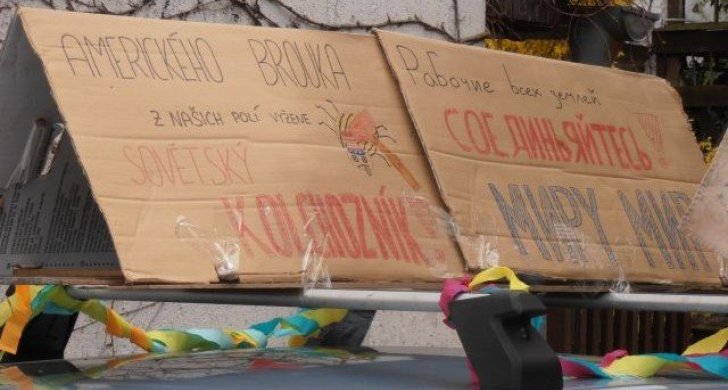 AMERICKÉHO BROUKA
Z NAŠICH POLÍ VYŽENE
SOVĚTSKÝ
KOLCHOZNÍK!
Рабочие всех землей
СОЕДИНЬЯЙТЕСЬ!!
МИРУ МИР